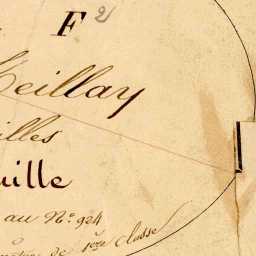 F 2
Teillay
illes
uille
au N° 924
de 1ère classe